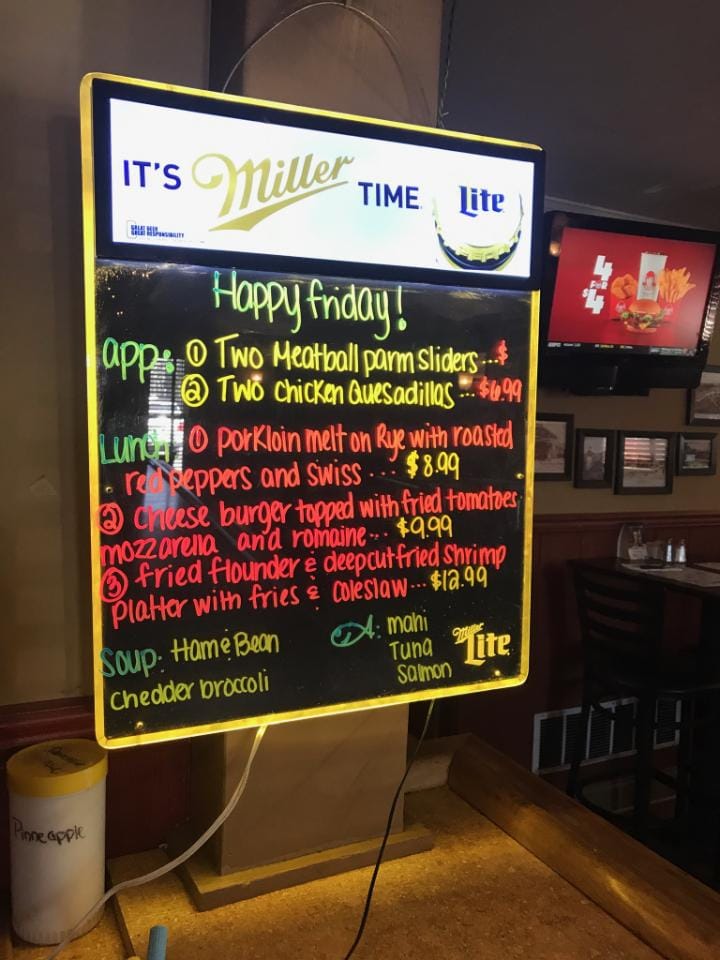 IT'S Miller TIME. Lite
GREAT BEER
GREAT RESPONSIBILITY
Happy friday!
app: ① Two Meatball parm sliders...$
② Two Chicken Quesadillas...$6.99
Lunch ① porkloin melt on Rye with roasted
red peppers and Swiss .... $8.99
② Cheese burger topped with fried tomatoes
mozzarella and romaine... $9.99
③ fried flounder & deepcut fried shrimp
Platter with fries & coleslaw...$12.99
Soup: Ham & Bean
Chedder broccoli
: mahi
Tuna
Salmon
Miller
Lite
4 FOR $4
ESPN
Pinneapple